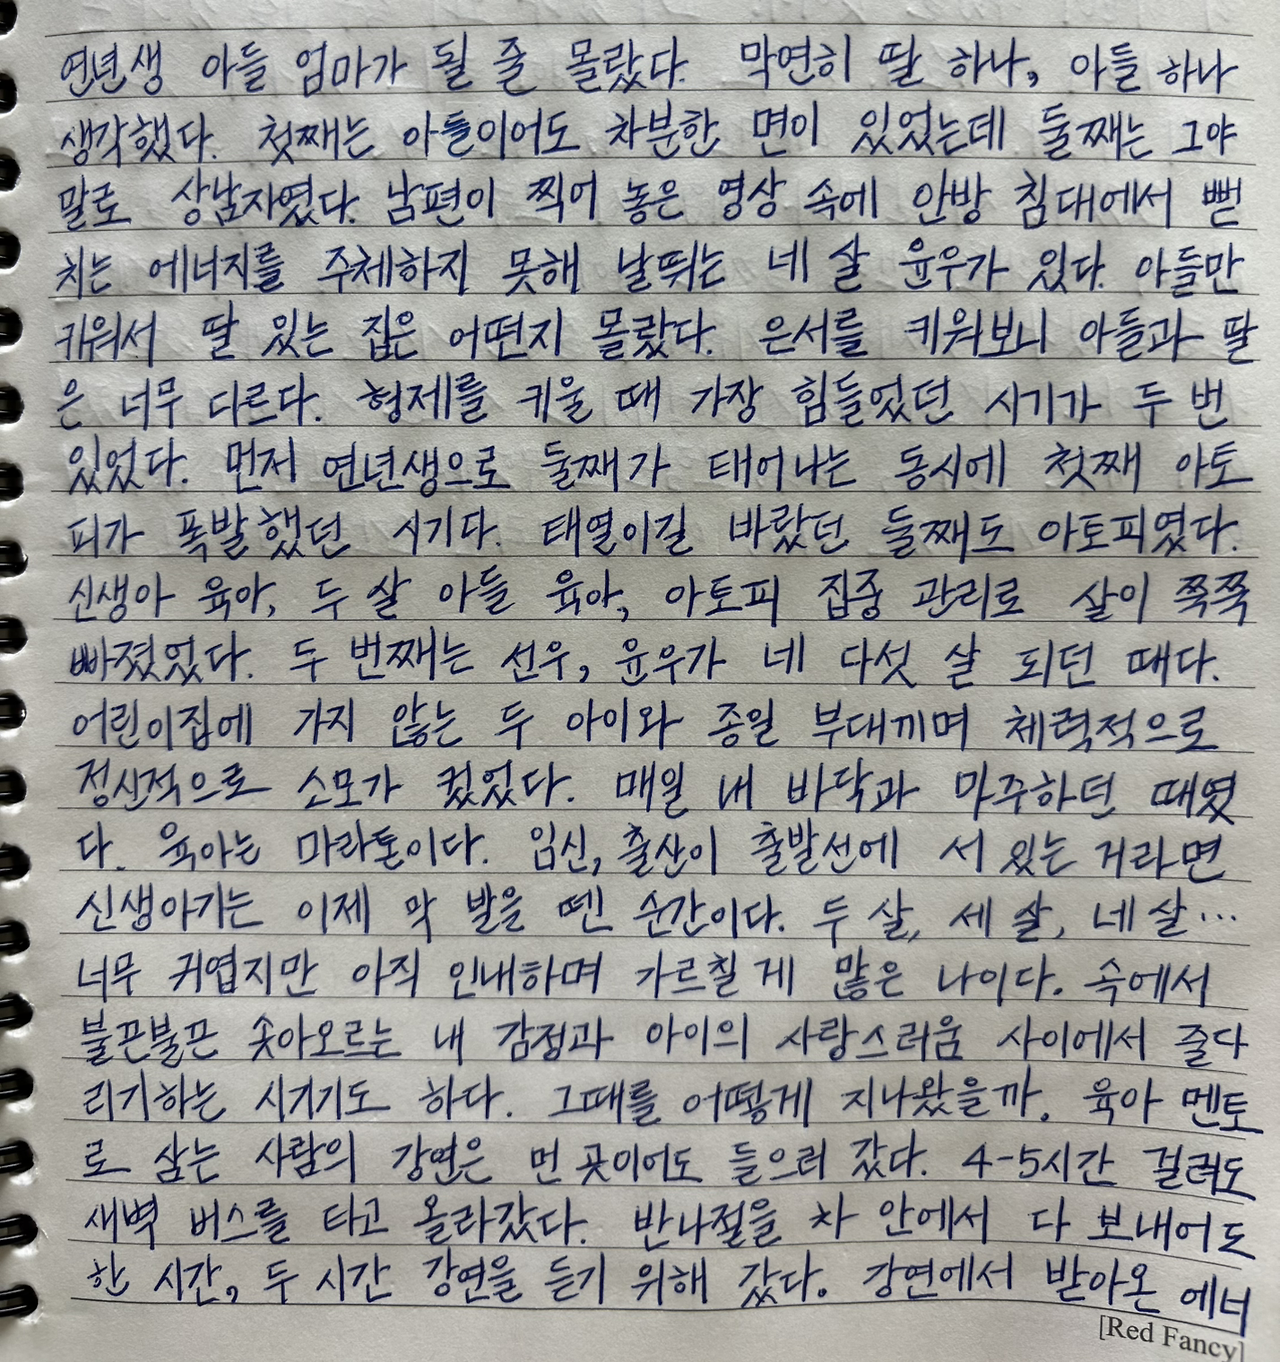 연년생 아들 엄마가 될 줄 몰랐다. 막연히 딸 하나, 아들 하나
생각했다. 첫째는 아들이어도 차분한 면이 있었는데 둘째는 그야
말로 상남자였다. 남편이 찍어 놓은 영상 속에 안방 침대에서 뻗
치는 에너지를 주체하지 못해 날뛰는 네 살 윤우가 있다. 아들만
키워서 딸 있는 집은 어떤지 몰랐다. 은서를 키워보니 아들과 딸
은 너무 다르다. 형제를 키울 때 가장 힘들었던 시기가 두 번
있었다. 먼저 연년생으로 둘째가 태어나는 동시에 첫째 아토
피가 폭발했던 시기다. 태열이길 바랐던 둘째도 아토피였다.
신생아 육아, 두 살 아들 육아, 아토피 집중 관리로 살이 쭉쭉
빠졌었다. 두 번째는 선우, 윤우가 네 다섯 살 되던 때다.
어린이집에 가지 않는 두 아이와 종일 부대끼며 체력적으로
정신적으로 소모가 컸었다. 매일 내 바닥과 마주하던 때였
다. 육아는 마라톤이다. 임신, 출산이 출발선에 서 있는 거라면
신생아기는 이제 막 발을 뗀 순간이다. 두 살, 세 살, 네 살…
너무 귀엽지만 아직 인내하며 가르칠 게 많은 나이다. 속에서
불끈불끈 솟아오르는 내 감정과 아이의 사랑스러움 사이에서 줄다
리기하는 시기기도 하다. 그때를 어떻게 지나왔을까. 육아 멘토
로 삼는 사람의 강연은 먼 곳이어도 들으러 갔다. 4-5시간 걸려도
새벽 버스를 타고 올라갔다. 반나절을 차 안에서 다 보내어도
한 시간, 두 시간 강연을 듣기 위해 갔다. 강연에서 받아온 에너
[Red Fancy]